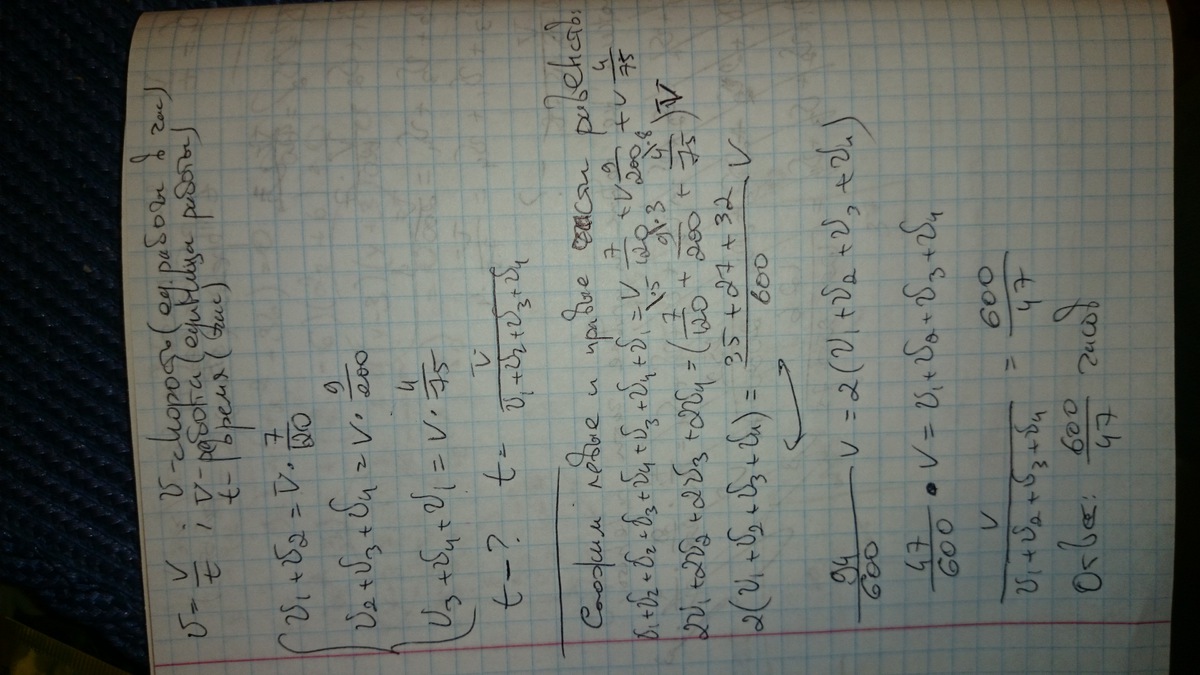 υ = V/t ; υ - скорость (ед. работы в час)
V - работа (единица работы)
t - время (час)
υ₁ + υ₂ = V · 7/120
υ₂ + υ₃ + υ₄ = V · 9/200
υ₃ + υ₄ + υ₁ = V · 4/75
t - ? t = V/(υ₁ + υ₂ + υ₃ + υ₄)
Сложим левые и правые части равенств:
υ₁ + υ₂ + υ₂ + υ₃ + υ₄ + υ₃ + υ₄ + υ₁ = V 7/120 + V 9/200 + V 4/75
2υ₁ + 2υ₂ + 2υ₃ + 2υ₄ = (7·5/120 + 9·3/200 + 4·8/75) V
2(υ₁ + υ₂ + υ₃ + υ₄) = (35 + 27 + 32)/600 V
94/600 V = 2(υ₁ + υ₂ + υ₃ + υ₄)
47/600 · V = υ₁ + υ₂ + υ₃ + υ₄
V/(υ₁ + υ₂ + υ₃ + υ₄) = 600/47
Ответ: 600/47 часов